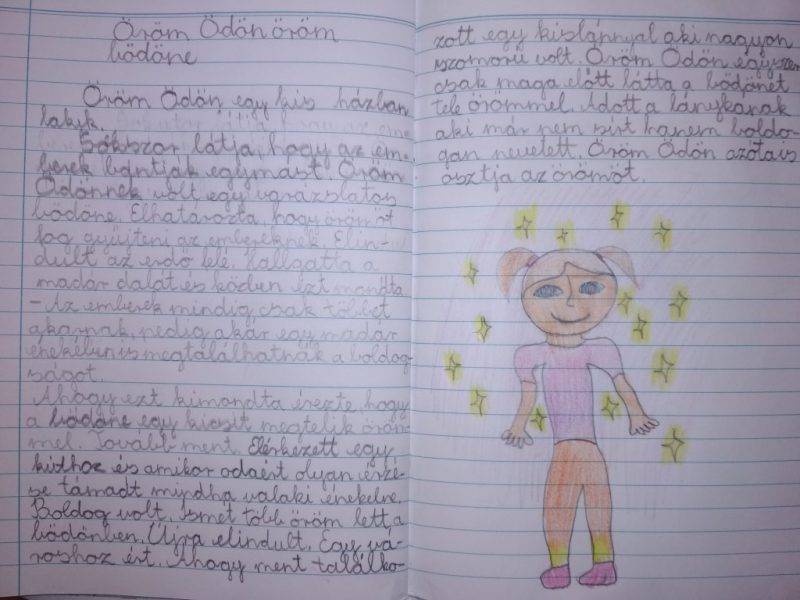 Öröm Ödön öröm
bödöne
Öröm Ödön egy kis házban
lakik.
Sokszor látja, hogy az em-
berek bántják egymást. Öröm
Ödönnek volt egy varázslatos
bödöne. Elhatározta, hogy örömöt
fog gyűjteni az embereknek. Elin-
dult az erdő felé. Hallgatta a
madár dalát és közben ezt mondta
- Az emberek mindig csak többet
akarnak, pedig akár egy madár
énekében is megtalálhatnák a boldog-
ságot.
Ahogy ezt kimondta érezte, hogy
a bödöne egy kicsit megtelik öröm-
mel. Tovább ment. Elérkezett egy
kúthoz és amikor odaért olyan érzé-
se támadt mindha valaki énekelne.
Boldog volt, ismét több öröm lett a
bödönben. Újra elindult. Egy vá-
roshoz ért. Ahogy ment találko-
zott egy kislánnyal aki nagyon
szomorú volt. Öröm Ödön egyszer
csak maga előtt látta a bödönét
tele örömmel. Adott a lánykának
aki már nem sírt hanem boldo-
gan nevetett. Öröm Ödön azóta is
osztja az örömöt.